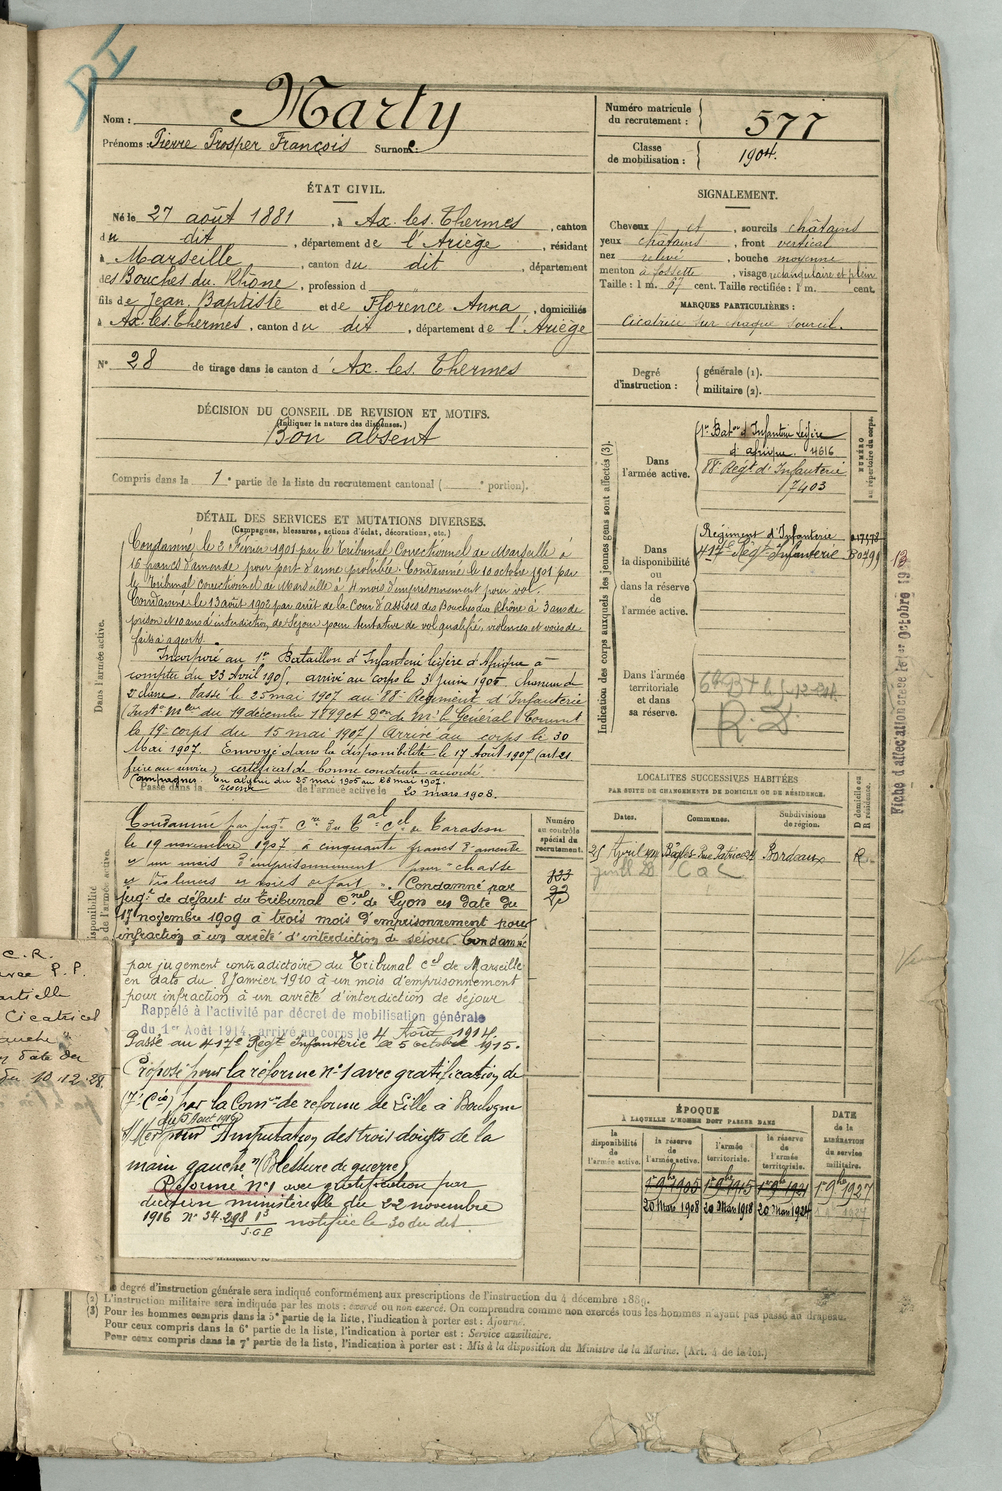 D I
Nom : Marty
Prénoms : Pierre Prosper François Surnom :
Numéro matricule du recrutement : 577
Classe de mobilisation : 1904.
ÉTAT CIVIL.
Né le 27 août 1881, à Ax. les. Thermes, canton
du dit, département de l'Ariège, résidant
à Marseille, canton du dit, département
des Bouches du Rhône, profession d
fils de Jean Baptiste et de Florence Anna, domiciliés
à Ax les Thermes, canton du dit, département de l'Ariège
N° 28 de tirage dans le canton d'Ax. les. Thermes
SIGNALEMENT.
Cheveux et, sourcils châtains
yeux châtains, front vertical
nez relevé, bouche moyenne
menton à fossette, visage rectangulaire et plein
Taille : 1 m. 67 cent. Taille rectifiée : 1 m. cent.
MARQUES PARTICULIÈRES :
Cicatrice sur chaque sourcil.
Degré d'instruction : générale (1).
militaire (2).
DÉCISION DU CONSEIL DE REVISION ET MOTIFS.
(Indiquer la nature des dispenses.)
Bon absent
Compris dans la 1e partie de la liste du recrutement cantonal ( e portion).
DÉTAIL DES SERVICES ET MUTATIONS DIVERSES.
(Campagnes, blessures, actions d'éclat, décorations, etc.)
Dans l'armée active.
Condamné le 2 Février 1901 par le Tribunal Correctionnel de Marseille à
16 francs d'amende pour port d'arme prohibée. Condamné le 10 octobre 1901 par
le Tribunal Correctionnel de Marseille à 4 mois d'emprisonnement pour vol.
Condamné le 13 août 1902 par arrêt de la Cour d'assises des Bouches du Rhône à 3 ans de
prison et 10 ans d'interdiction de séjour pour tentative de vol qualifié, violences et voies de
fait à agents.
Incorporé au 1er Bataillon d'Infanterie légère d'Afrique à
compter du 23 Avril 1905. arrivé au corps le 3 Juin 1905 Chasseur de
2e classe. Passé le 25 mai 1907 au 88e Régiment d'Infanterie
(Instr. Mlle du 19 décembre 1899 et Don de Mr le Général Commt
le 19e corps du 15 mai 1907) Arrivé au corps le 30
Mai 1907. Envoyé dans la disponibilité le 17 Août 1907 (art 21
frère au service) certificat de bonne conduite accordé
Campagnes. En algérie du 25 mai 1905 au 28 mai 1907.
Passé dans la réserve de l'armée active le 20 mars 1908.
Condamné par jugt cre du Tal Cel de Tarascon
le 19 novembre 1907 à cinquante francs d'amende
et un mois d'emprisonnement pour "chasse
et violences et voies de fait". Condamné par
jugt de défaut du Tribunal Cnel de Lyon en date du
17 novembre 1909 à trois mois d'emprisonnement pour
infraction à un arrêté d'interdiction de séjour. Condamné
par jugement contradictoire du Tribunal cel de Marseille
en date du 8 Janvier 1910 à un mois d'emprisonnement
pour infraction à un arrêté d'interdiction de séjour
Rappélé à l'activité par décret de mobilisation générale
du 1er Août 1914, arrivé au corps le 4 Août 1914.
Passé au 417e Regt Infanterie le 5 octobre 1915.
Proposé pour la réforme n°1 avec gratification de
(7e Cie) par la Comon de reforme de Lille à Boulogne
du 5 Aout 1916
S/Mer pour "Amputation des trois doigts de la
main gauche" (Blessure de guerre)
Réformé N°1 avec gratification par
décision ministérielle du 22 novembre
1916 n° 34.298 13 notifiée le 30 du dit.
S.G.P
C. R.
P. P.
Cicatrices
auche"
date du
10 12 28
Numéro au contrôle spécial du recrutement.
Indication des corps auxquels les jeunes gens sont affectés (3).
Dans l'armée active.
1er Baton d'Infanterie Légère
d'afrique. 4616
88e Regt d'Infanterie
17403
NUMÉRO au répertoire du corps.
Dans la disponibilité ou dans la réserve de l'armée active.
Régiment d'Infanterie
417e Regt Infanterie
Dans l'armée territoriale et dans sa réserve.
R. D.
Fiche d'affectation créée le 1er Octobre 19
LOCALITÉS SUCCESSIVES HABITÉES
PAR SUITE DE CHANGEMENTS DE DOMICILE OU DE RÉSIDENCE.
Dates. Communes. Subdivisions de région. D domicile ou R résidence.
25 Avril Bègles Bordeaux R.
ÉPOQUE
À LAQUELLE L'HOMME DOIT PASSER DANS
la disponibilité de l'armée active. la réserve de l'armée active. l'armée territoriale. la réserve de l'armée territoriale.
DATE de la LIBÉRATION du service militaire.
1er 9bre 1905 1er 9bre 1915 1er 9bre 1921 1er 9bre 1927
20 Mars 1908 20 Mars 1918 20 Mars 1924
degré d'instruction générale sera indiqué conformément aux prescriptions de l'instruction du 4 décembre 1889.
(2) L'instruction militaire sera indiquée par les mots : exercé ou non exercé. On comprendra comme non exercés tous les hommes n'ayant pas passé au drapeau.
(3) Pour les hommes compris dans la 5e partie de la liste, l'indication à porter est : Ajourné.
Pour ceux compris dans la 6e partie de la liste, l'indication à porter est : Service auxiliaire.
Pour ceux compris dans la 7e partie de la liste, l'indication à porter est : Mis à la disposition du Ministre de la Marine. (Art. 4 de la loi.)